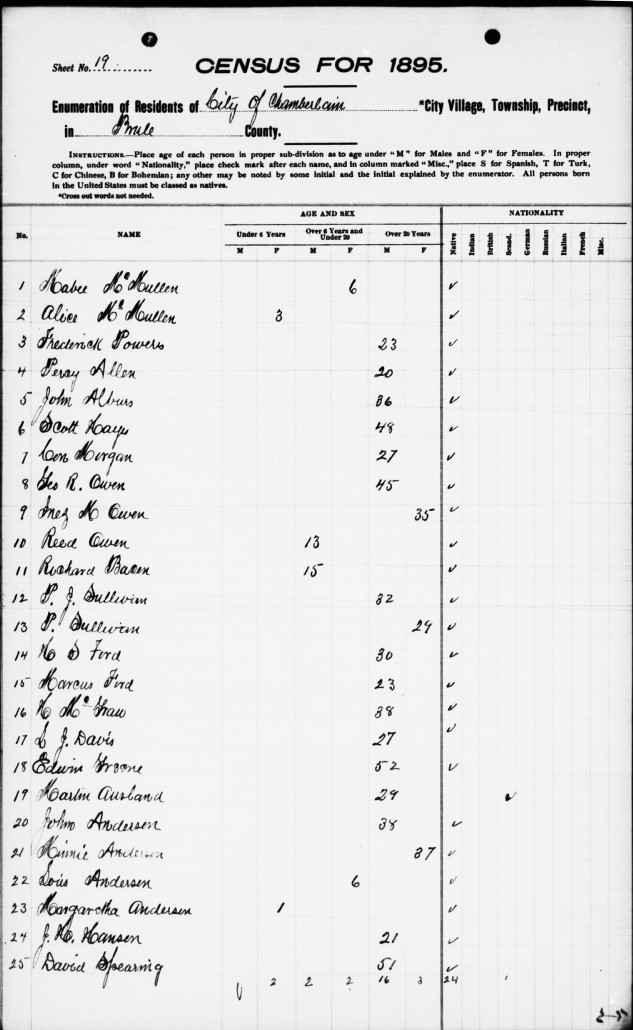 Sheet No. 19
CENSUS FOR 1895.
Enumeration of Residents of City of Chamberlain *City Village, Township, Precinct,
in Brule County.
INSTRUCTIONS.—Place age of each person in proper sub-division as to age under "M" for Males and "F" for Females. In proper
column, under word "Nationality," place check mark after each name, and in column marked "Misc.," place S for Spanish, T for Turk,
C for Chinese, B for Bohemian; any other may be noted by some initial and the initial explained by the enumerator. All persons born
in the United States must be classed as natives.
*Cross out words not needed.
AGE AND SEX NATIONALITY
No. NAME Under 6 Years Over 6 Years and Under 20 Over 20 Years Native Indian British Scand. German Russian Italian French Misc.
M F M F M F
1 Mabee McMullen 6 ✓
2 Alice McMullen 3 ✓
3 Frederick Powers 23 ✓
4 Percy Allen 20 ✓
5 John Alburs 36 ✓
6 Scott Hays 48 ✓
7 Con Morgan 27 ✓
8 Geo R. Owen 45 ✓
9 Inez M Owen 35 ✓
10 Reed Owen 13 ✓
11 Richard Bacon 15 ✓
12 P. J. Sullivan 32 ✓
13 P. Sullivan 29 ✓
14 H S Ford 30 ✓
15 Marcus Ford 23 ✓
16 H McGraw 38 ✓
17 J. Davis 27 ✓
18 Edwin Greene 52 ✓
19 Martin Ausland 29 ✓
20 John Andersen 38 ✓
21 Minnie Andersen 37 ✓
22 Lois Andersen 6 ✓
23 Margaretha Andersen 1 ✓
24 J. H. Hansen 21 ✓
25 David Spearing 51 ✓
2 2 2 16 3 24 1